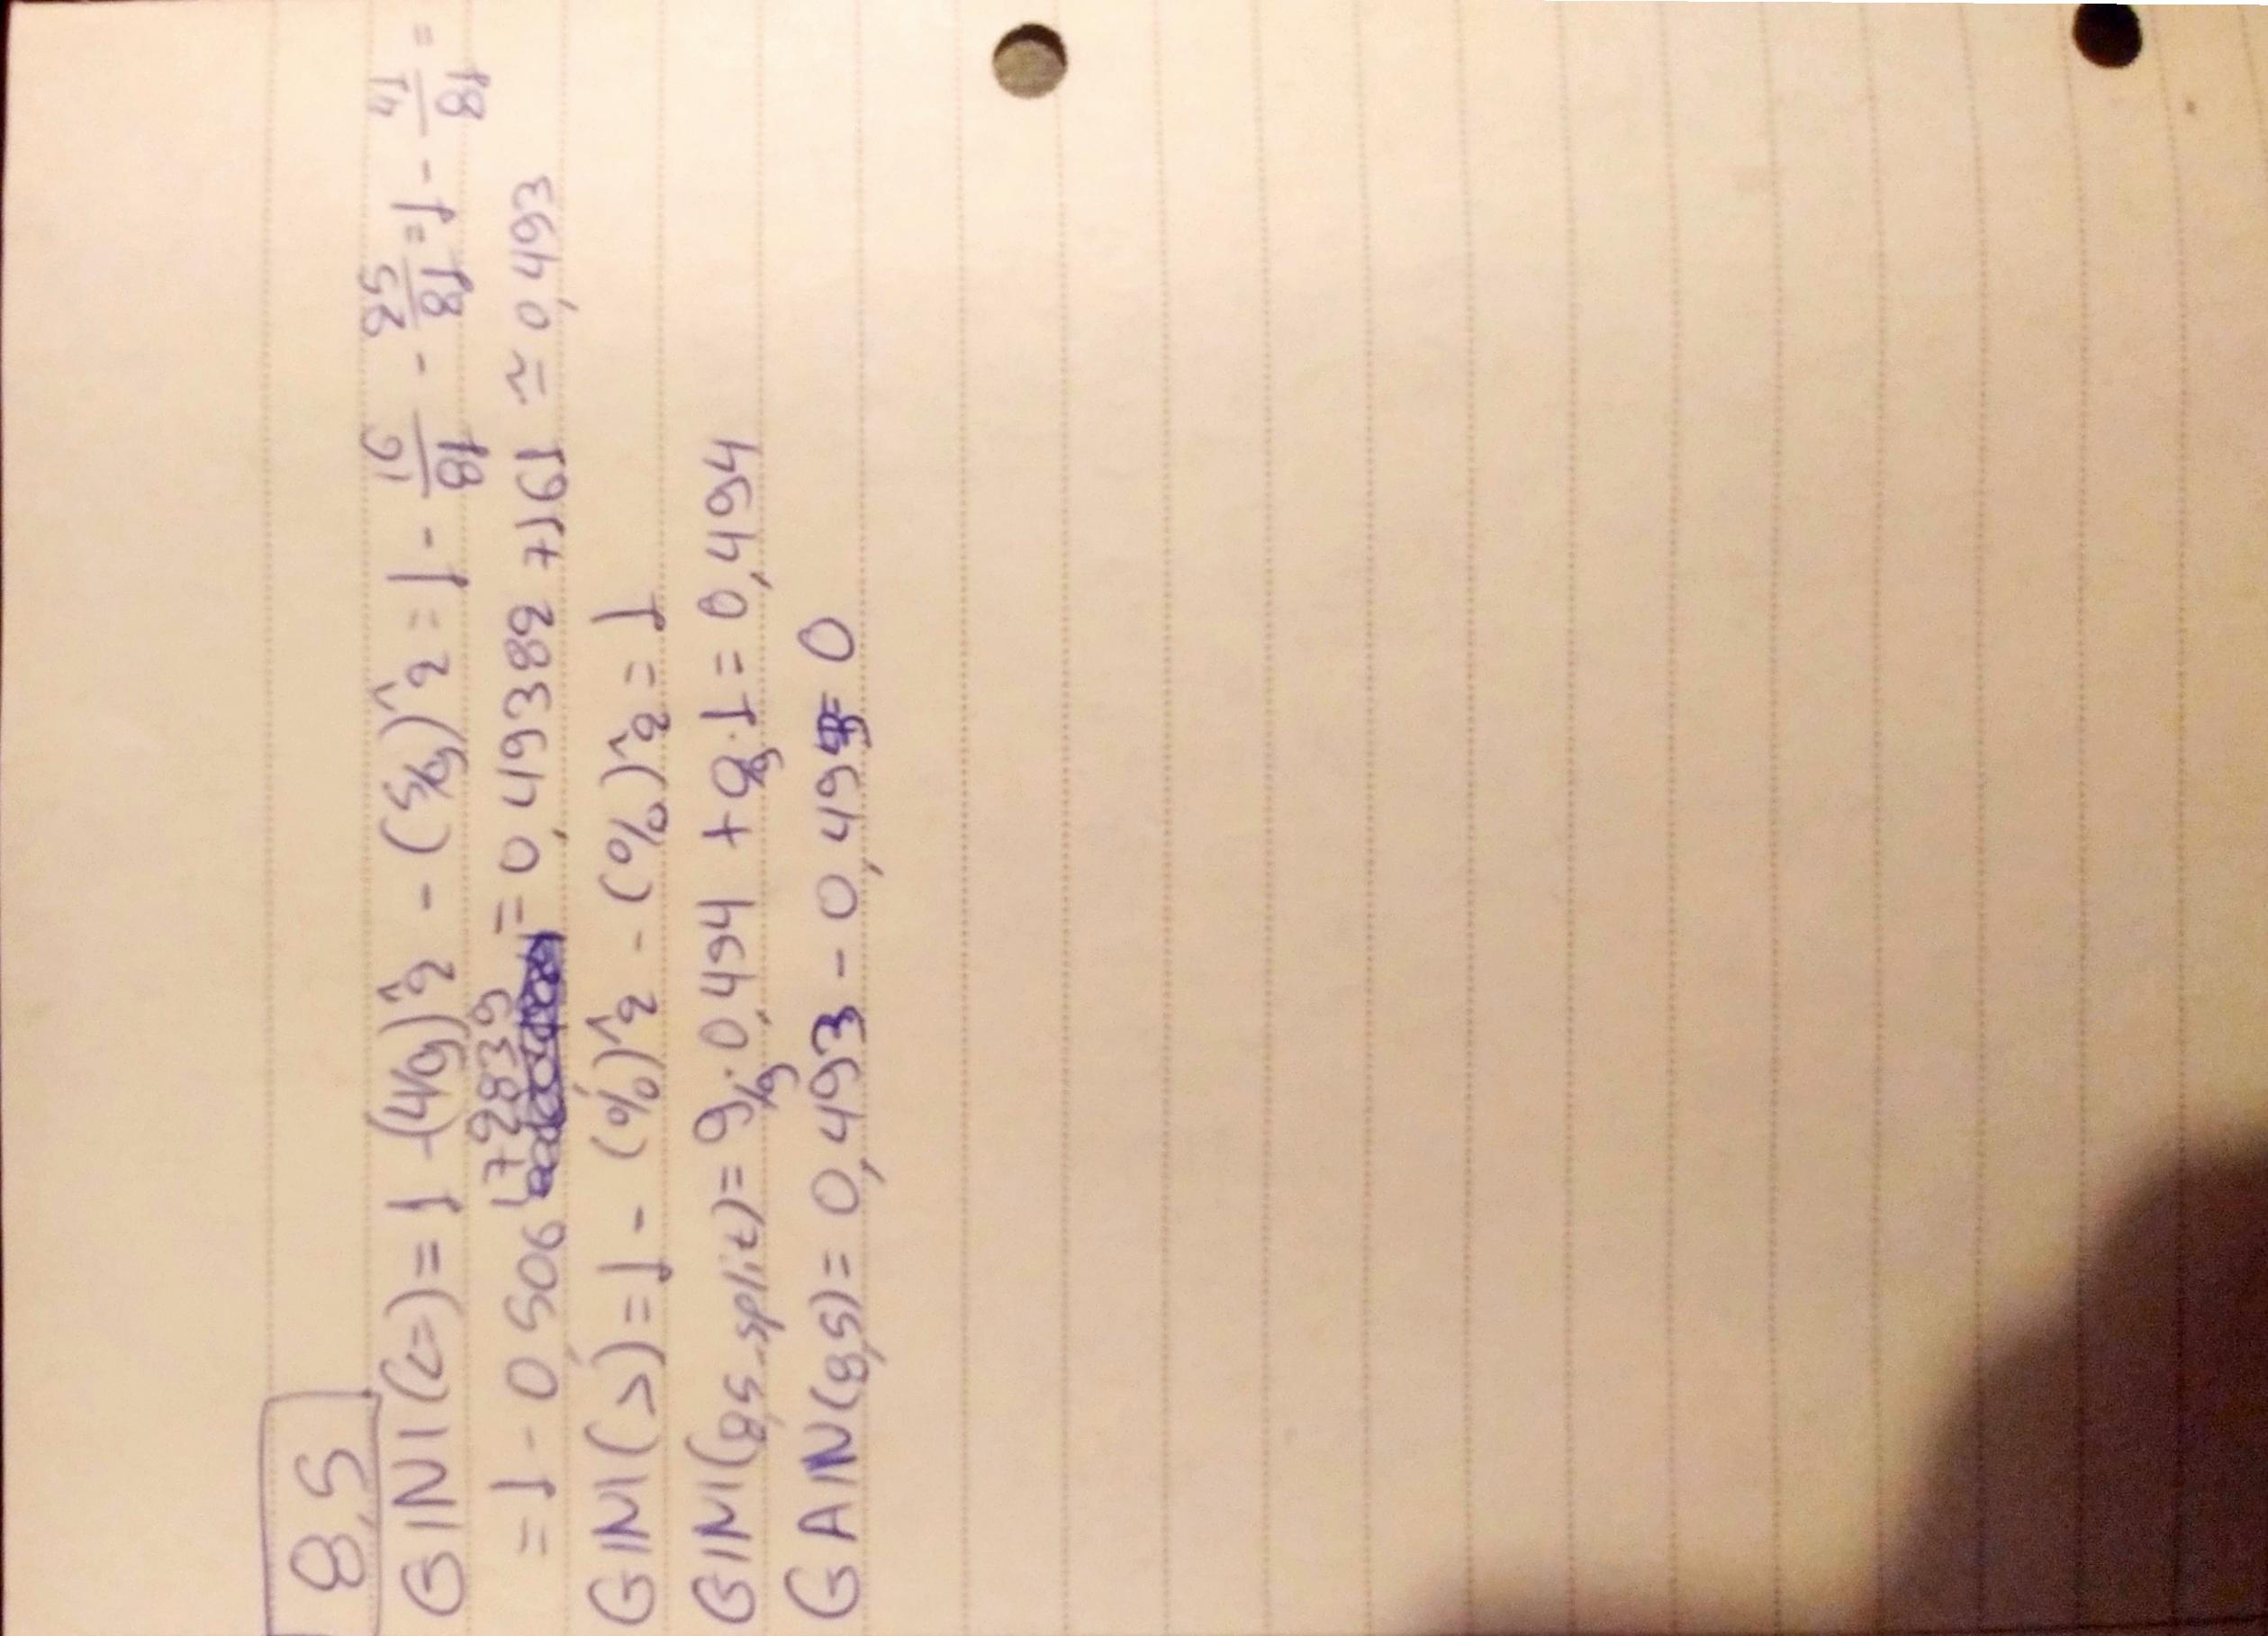 8,5
GINI(<=) = 1 - (4/9)^2 - (5/9)^2 = 1 - 16/81 - 25/81 = 1 - 41/81 =
= 1 - 0,506172839 = 0,4938827161 ≃ 0,493
GINI(>) = 1 - (0/0)^2 - (0/0)^2 = 1
GINI(8,5_split) = 9/9 · 0,494 + 0/9 · 1 = 0,494
GAIN(8,5) = 0,493 - 0,493 = 0